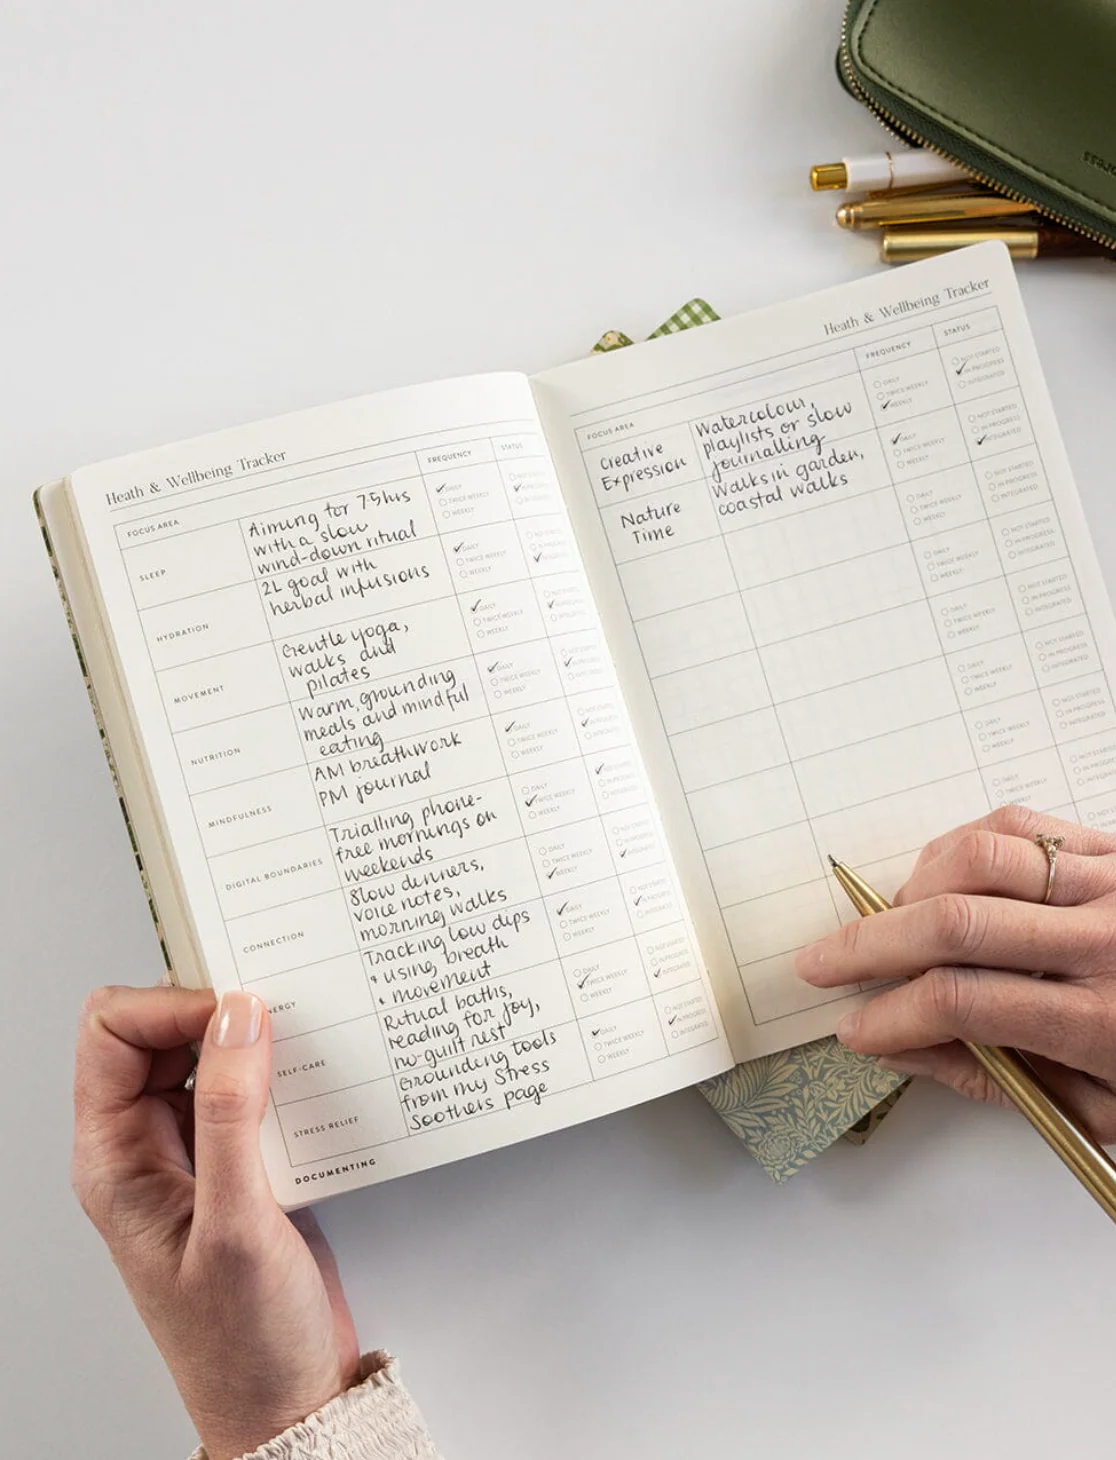 Heath & Wellbeing Tracker
FOCUS AREA
FREQUENCY
STATUS
SLEEP
Aiming for 7.5hrs
with a slow
wind-down ritual
DAILY
TWICE WEEKLY
WEEKLY
NOT STARTED
IN PROGRESS
INTEGRATED
HYDRATION
2L goal with
herbal infusions
DAILY
TWICE WEEKLY
WEEKLY
NOT STARTED
IN PROGRESS
INTEGRATED
MOVEMENT
Gentle yoga,
walks and
pilates
DAILY
TWICE WEEKLY
WEEKLY
NOT STARTED
IN PROGRESS
INTEGRATED
NUTRITION
Warm, grounding
meals and mindful
eating
DAILY
TWICE WEEKLY
WEEKLY
NOT STARTED
IN PROGRESS
INTEGRATED
MINDFULNESS
AM breathwork
PM journal
DAILY
TWICE WEEKLY
WEEKLY
NOT STARTED
IN PROGRESS
INTEGRATED
DIGITAL BOUNDARIES
Trialling phone-
free mornings on
weekends
DAILY
TWICE WEEKLY
WEEKLY
NOT STARTED
IN PROGRESS
INTEGRATED
CONNECTION
Slow dinners,
voice notes,
morning walks
DAILY
TWICE WEEKLY
WEEKLY
NOT STARTED
IN PROGRESS
INTEGRATED
NERGY
Tracking low dips
+ using breath
+ movement
DAILY
TWICE WEEKLY
WEEKLY
NOT STARTED
IN PROGRESS
INTEGRATED
SELF-CARE
Ritual baths,
reading for joy,
no-guilt rest
DAILY
TWICE WEEKLY
WEEKLY
NOT STARTED
IN PROGRESS
INTEGRATED
STRESS RELIEF
Grounding tools
from my Stress
Soothers page
DAILY
TWICE WEEKLY
WEEKLY
NOT STARTED
IN PROGRESS
INTEGRATED
DOCUMENTING
Heath & Wellbeing Tracker
FOCUS AREA
FREQUENCY
STATUS
Creative
Expression
Watercolour,
playlists or slow
journalling
DAILY
TWICE WEEKLY
WEEKLY
NOT STARTED
IN PROGRESS
INTEGRATED
Nature
Time
Walks in garden,
coastal walks
DAILY
TWICE WEEKLY
WEEKLY
NOT STARTED
IN PROGRESS
INTEGRATED
DAILY
TWICE WEEKLY
WEEKLY
NOT STARTED
IN PROGRESS
INTEGRATED
DAILY
TWICE WEEKLY
WEEKLY
NOT STARTED
IN PROGRESS
INTEGRATED
DAILY
TWICE WEEKLY
WEEKLY
NOT STARTED
IN PROGRESS
INTEGRATED
DAILY
TWICE WEEKLY
WEEKLY
NOT STARTED
IN PROGRESS
INTEGRATED
DAILY
TWICE WEEKLY
WEEKLY
NOT STARTED
IN PROGRESS
INTEGRATED
DAILY
TWICE WEEKLY